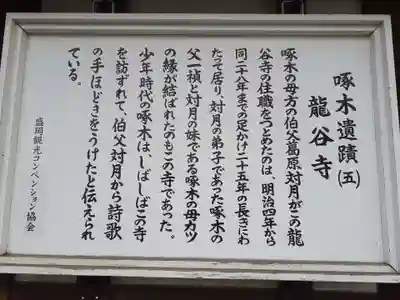 啄木遺蹟(五)
龍谷寺
啄木の母方の伯父葛原対月がこの龍
谷寺の住職をつとめたのは、明治四年から
同二十八年までの足かけ二十五年の長きにわ
たって居り、対月の弟子であった啄木の
父一禎と対月の妹である啄木の母カツ
の縁が結ばれたのもこの寺であった。
少年時代の啄木はしばしばこの寺
を訪ずれて、伯父対月から詩歌
の手ほどきをうけたと伝えられ
ている。
盛岡観光コンベンション協会